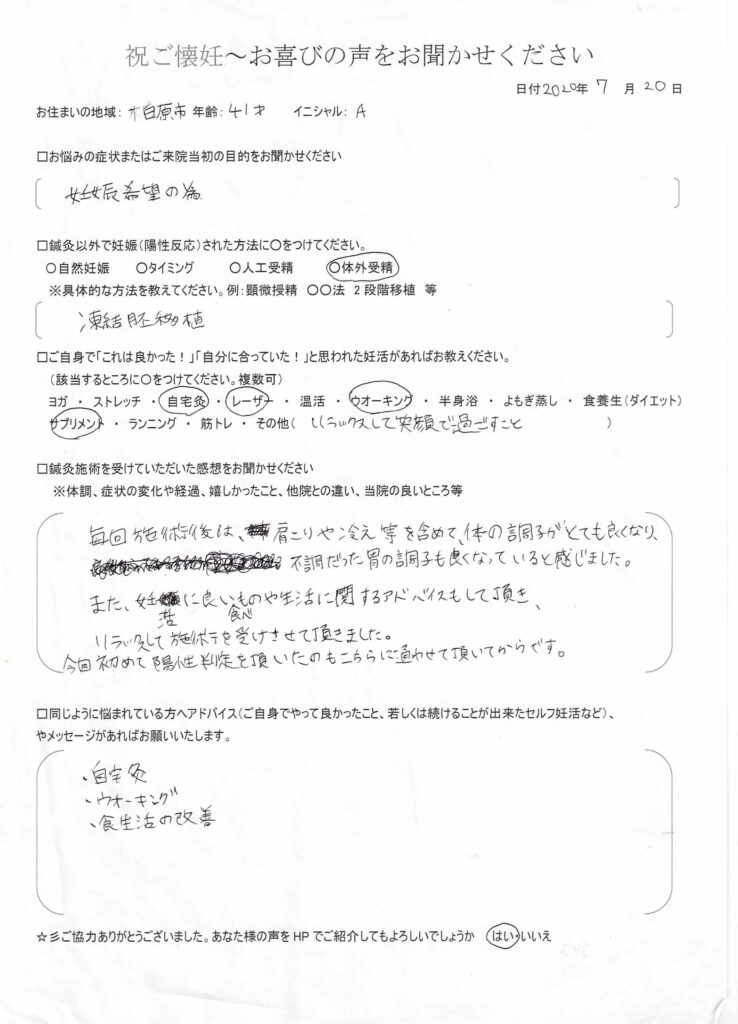 祝ご懐妊～お喜びの声をお聞かせください
日付2020年 7 月 20 日
お住まいの地域: 柏原市 年齢: 41才 イニシャル: A
□お悩みの症状またはご来院当初の目的をお聞かせください
妊娠希望の為
□鍼灸以外で妊娠（陽性反応）された方法に〇をつけてください。
〇自然妊娠 〇タイミング 〇人工受精 〇体外受精
※具体的な方法を教えてください。例：顕微授精 〇〇法 2段階移植 等
凍結胚移植
□ご自身で「これは良かった！」「自分に合っていた！」と思われた妊活があればお教えください。
（該当するところに〇をつけてください。複数可）
ヨガ ・ ストレッチ ・ 自宅灸 ・ レーザー ・ 温活 ・ ウオーキング ・ 半身浴 ・ よもぎ蒸し ・ 食養生（ダイエット）
サプリメント ・ ランニング ・ 筋トレ ・ その他（ リラックスして笑顔で過ごすこと ）
□鍼灸施術を受けていただいた感想をお聞かせください
※体調、症状の変化や経過、嬉しかったこと、他院との違い、当院の良いところ等
毎回施術後は、肩こりや冷え等を含めて、体の調子がとても良くなり、
不調だった胃の調子も良くなっていると感じました。
また、妊活に良い食べものや生活に関するアドバイスもして頂き、
リラックスして施術を受けさせて頂きました。
今回初めて陽性判定を頂いたのもこちらに通わせて頂いてからです。
□同じように悩まれている方へアドバイス（ご自身でやって良かったこと、若しくは続けることが出来たセルフ妊活など）、
やメッセージがあればお願いいたします。
・自宅灸
・ウオーキング
・食生活の改善
☆彡ご協力ありがとうございました。あなた様の声をHPでご紹介してもよろしいでしょうか はい・いいえ